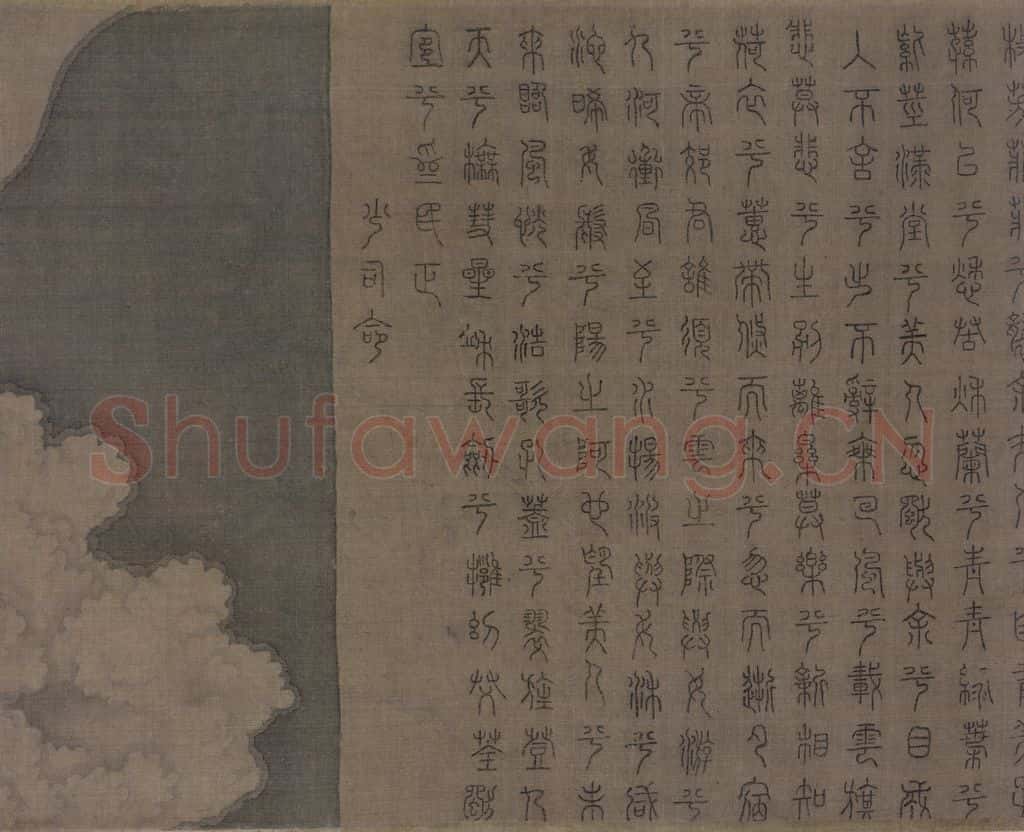 枝芳菲菲兮襲予夫人兮自有美子
蓀何以兮愁苦秋蘭兮青青綠葉兮
紫莖滿堂兮美人忽獨與余兮目成
入不言兮出不辭乘回風兮載雲旗
悲莫悲兮生別離樂莫樂兮新相知
荷衣兮蕙帶倏而來兮忽而逝夕宿
兮帝郊君誰須兮雲之際與女游兮
九河衝風至兮水揚波與女沐兮咸
池晞女髮兮陽之阿望美人兮未
來臨風怳兮浩歌孔蓋兮翠旌登九
天兮撫彗星竦長劍兮擁幼艾荃獨
宜兮為民正
少司命
Shufawang.CN